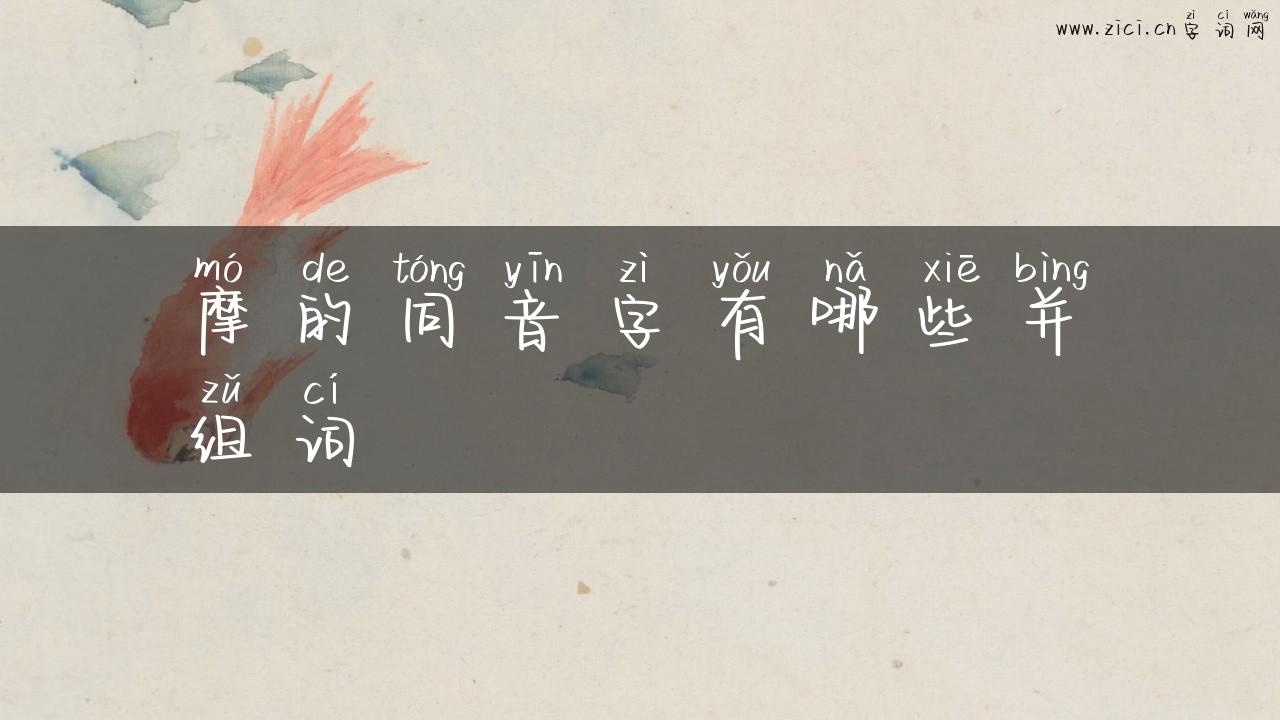 zì cí wǎng
www.zici.cn字词网
mó de tóng yīn zì yǒu nǎ xiē bìng
摩的同音字有哪些并
zǔ cí
组词